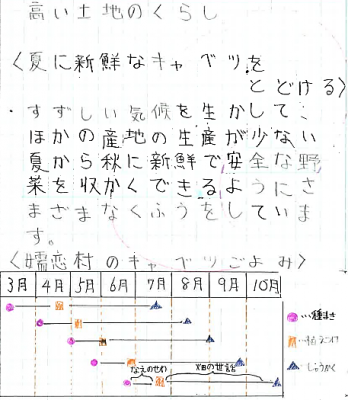 高い土地のくらし
〈夏に新鮮なキャベツを
とどける〉
・すずしい気候を生かして、
ほかの産地の生産が少ない
夏から秋に新鮮で安全な野
菜を収かくできるようにさ
まざまなくふうをしていま
す。
〈嬬恋村のキャベツごよみ〉
3月 4月 5月 6月 7月 8月 9月 10月
…種まき
…植えつけ
…しゅうかく
なえのせわ
畑の世話